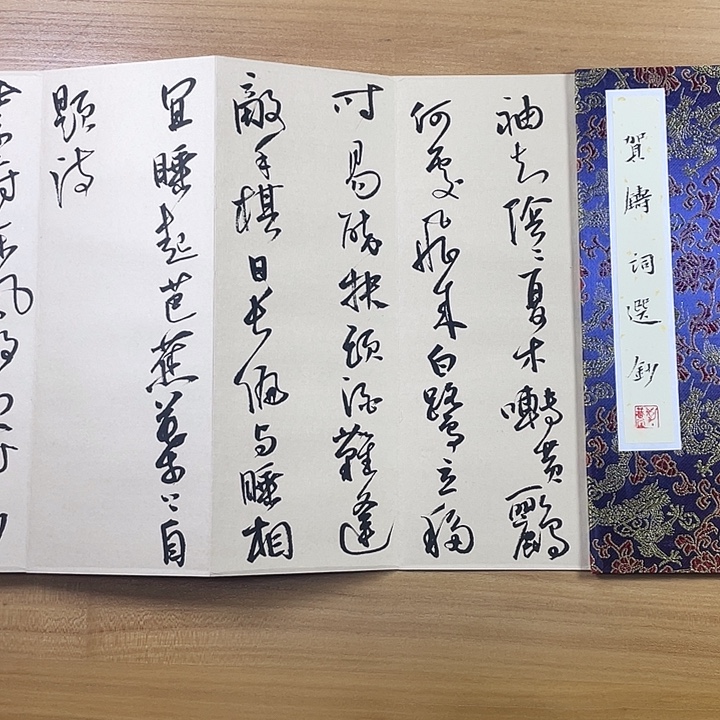 賀鑄詞選鈔
袖知陰〻夏木囀黃鸝
何處飛來白鷺立移
時易醉扶頭酒難逢
敵手棋日長偏與睡相
宜睡起芭蕉葉上自
題詩